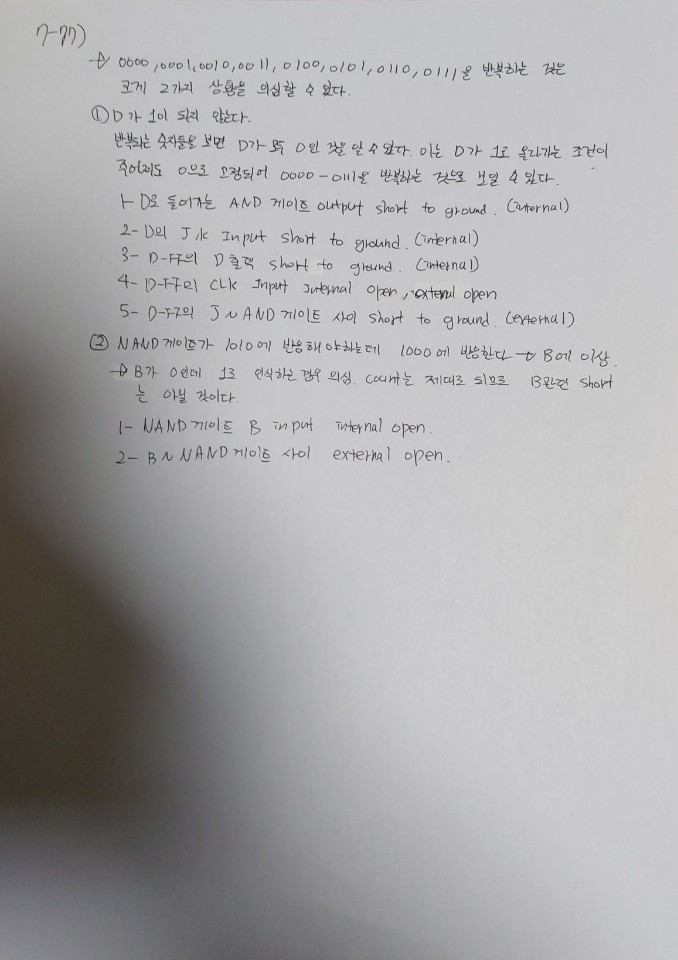 7-77)
→ 0000, 0001, 0010, 0011, 0100, 0101, 0110, 0111을 반복하는 것은
크게 2가지 상황을 의심할 수 있다.
① D가 1이 되지 않는다.
반복되는 숫자들을 보면 D가 모두 0인 것을 알 수 있다. 이는 D가 1로 올라가는 조건이
주어져도 0으로 고정되어 0000-0111을 반복하는 것으로 보일 수 있다.
1- D로 들어가는 AND 게이트 output short to ground. (internal)
2- D의 J, K Input short to ground. (internal)
3- D-FF의 D출력 short to ground. (internal)
4- D-FF의 CLK Input Internal open, external open
5- D-FF의 J~AND게이트 사이 short to ground. (external)
② NAND게이트가 1010에 반응해야하는데 1000에 반응한다 → B에 이상.
→ B가 0인데 1로 인식하는 경우 의심. count는 제대로 되므로 B관련 short
는 아닐 것이다.
1- NAND게이트 B input internal open.
2- B~NAND게이트 사이 external open.